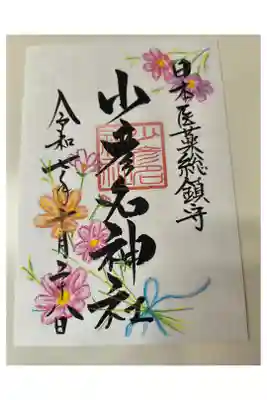 日本医薬総鎮守
少彦名神社
令和七年十月二十八日